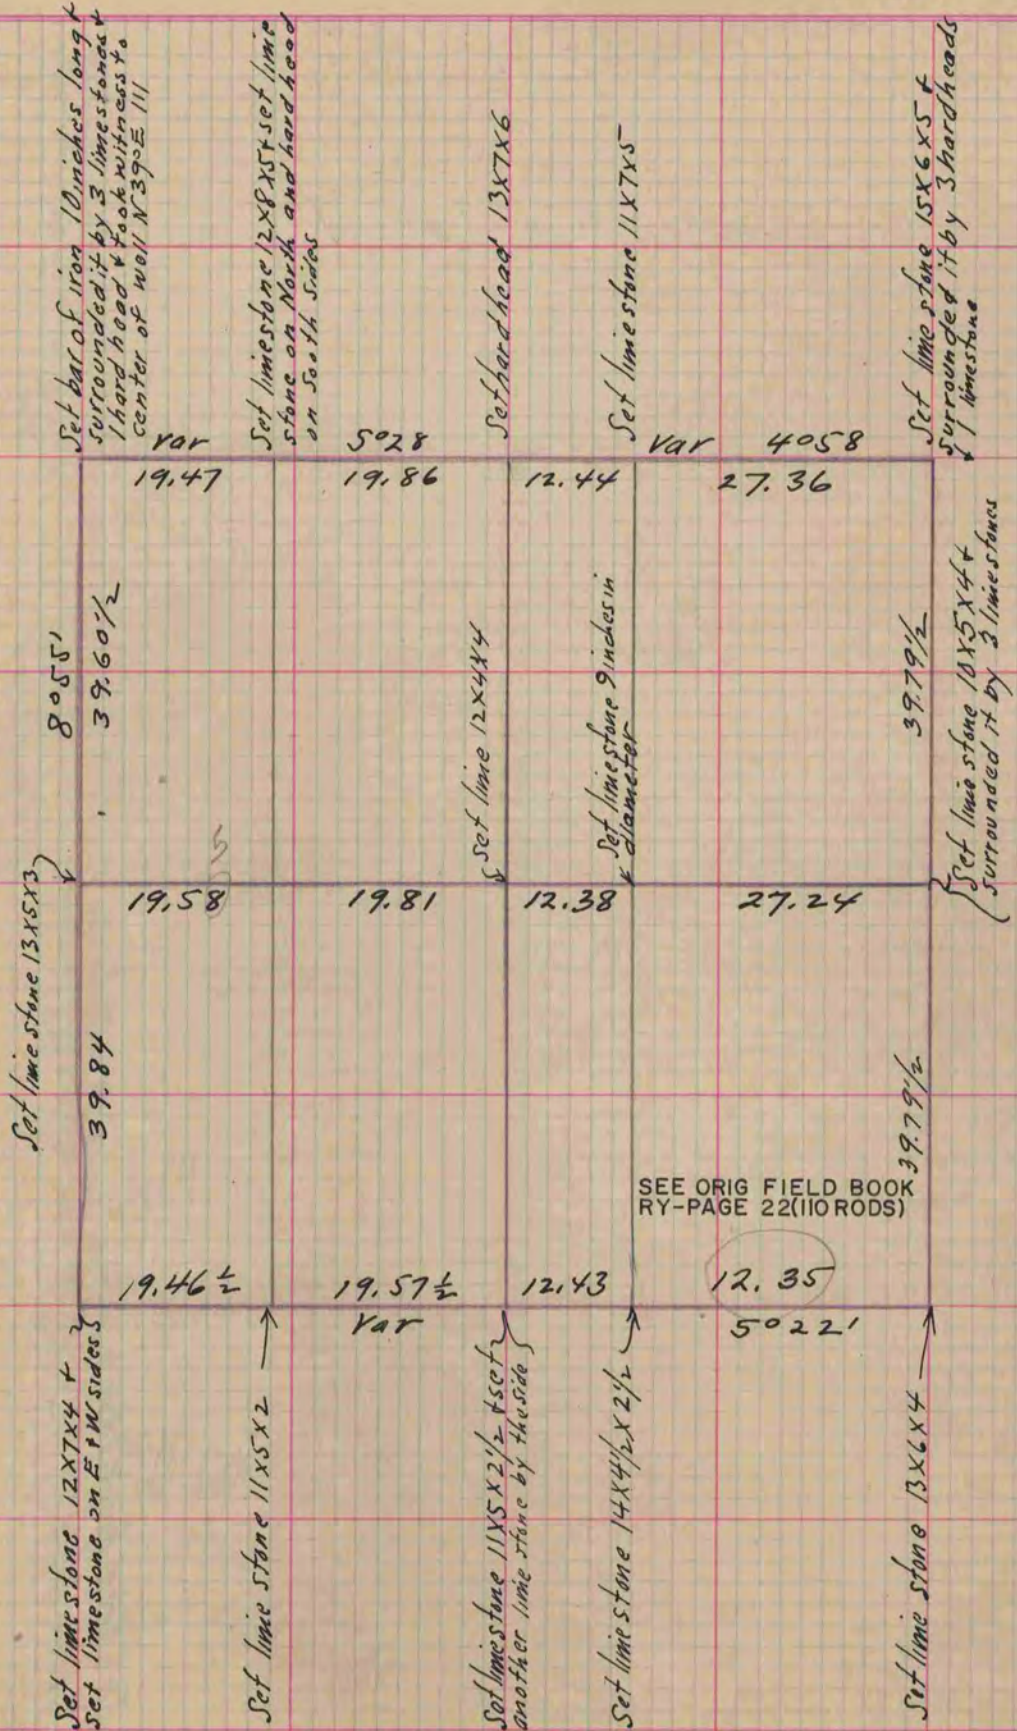 Set bar of iron 10 inches long &
surrounded it by 3 limestones &
1 hard head & took witness to
center of well N 39° E 111
Set limestone 12X8X5 & set lime
stone on North and hard head
on South sides
Set hard head 13X7X6
Set limestone 11X7X5
Set lime stone 15X6X5 &
surrounded it by 3 hardheads
& 1 limestone
var
5°28
var
4°58
19.47
19.86
12.44
27.36
8°55'
39.60 1/2
set lime 12X4X4
Set limestone 9 inches in
diameter
39.79 1/2
Set lime stone 10X5X4 &
surrounded it by 3 limestones
Set lime stone 13X5X3
19.58
5
19.81
12.38
27.24
39.84
39.79 1/2
SEE ORIG FIELD BOOK
RY-PAGE 22(110 RODS)
19.46 1/2
19.57 1/2
12.43
12.35
Var
5°22'
Set limestone 12X7X4 &
set limestone on E & W sides
Set lime stone 11X5X2
Set limestone 11X5X2 1/2 & set
another lime stone by the side
Set limestone 14X4 1/2 X 2 1/2
Set lime stone 13X6X4